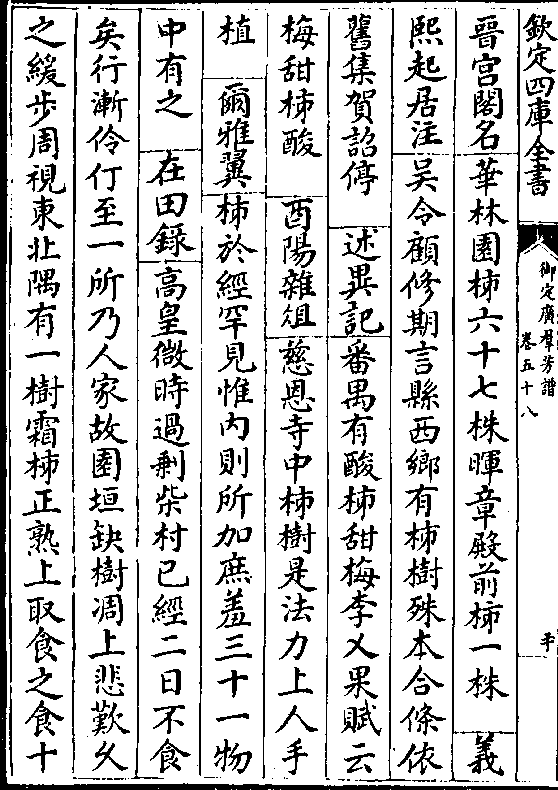 欽定四庫全書
御定廣羣芳譜
卷五十八
手
晉宮閣名華林園柿六十七株暉章殿前柿一株 義
熙起居注吴令顧修期言縣西鄉有柿樹殊本合條依
舊集賀詔停 述異記番禺有酸柿甜梅李乂果賦云
梅甜柿酸 酉陽雜俎慈恩寺中柿樹是法力上人手
植 爾雅翼柿於經罕見惟内則所加庶羞三十一物
中有之 在田錄高皇微時過剰柴村已經二日不食
矣行漸伶仃至一所乃人家故園垣缺樹凋上悲歎久
之緩步周視東北隅有一樹霜柿正熟上取食之食十